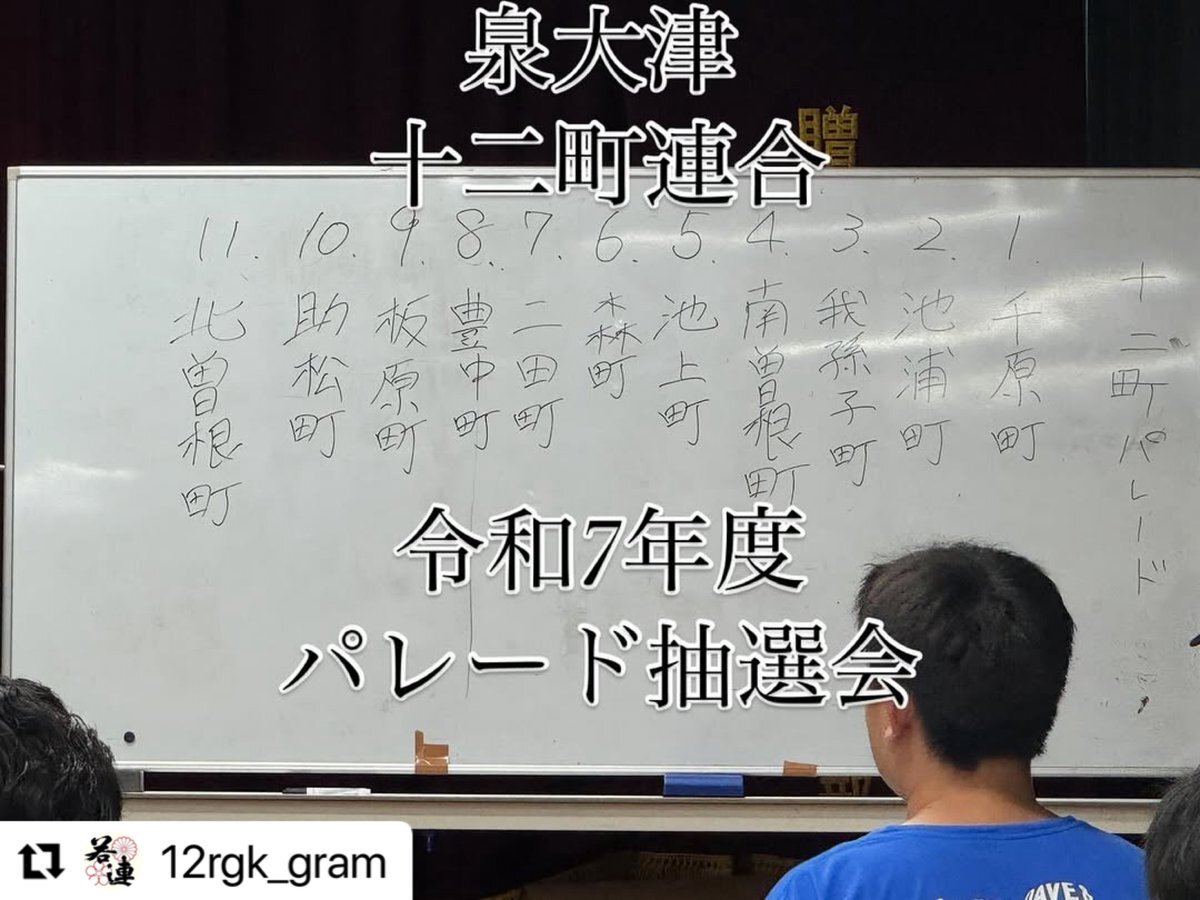 泉大津
十二町連合
贈
十二町パレード
1. 千原町
2. 池浦町
3. 我孫子町
4. 南曽根町
5. 池上町
6. 森町
7. 二田町
8. 豊中町
9. 板原町
10. 助松町
11. 北曽根町
令和7年度
パレード抽選会
若連
12rgk_gram